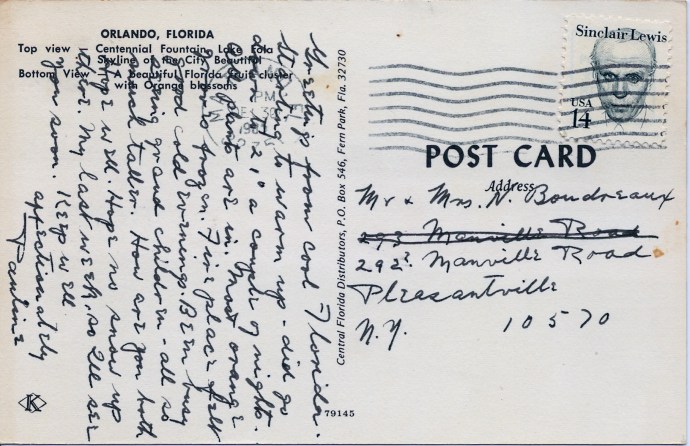 ORLANDO, FLORIDA
Top view - Centennial Fountain Lake Eola
Skyline of the City Beautiful
Bottom View - A beautiful Florida fruit cluster
with Orange blossoms
Greetings from cool Florida.
Starting to warm up - did go
down to 21° a couple of nights.
All plants are in. Most orange
groves frozen. Fire place felt
good cold evenings. Been busy
seeing grand children - all so
well & taller. How are you both
Hope well. Hope no snow up
there. My last week, so I'll see
you soon. Keep well
affectionately
Pauline
PM
Central Florida Distributors, P.O. Box 546, Fern Park, Fla. 32730
79145
K
Sinclair Lewis
USA
14
POST CARD
Address
Mr & Mrs. N. Boudreaux
293 Manville Road
292 Manville Road
Pleasantville
N.Y. 10570